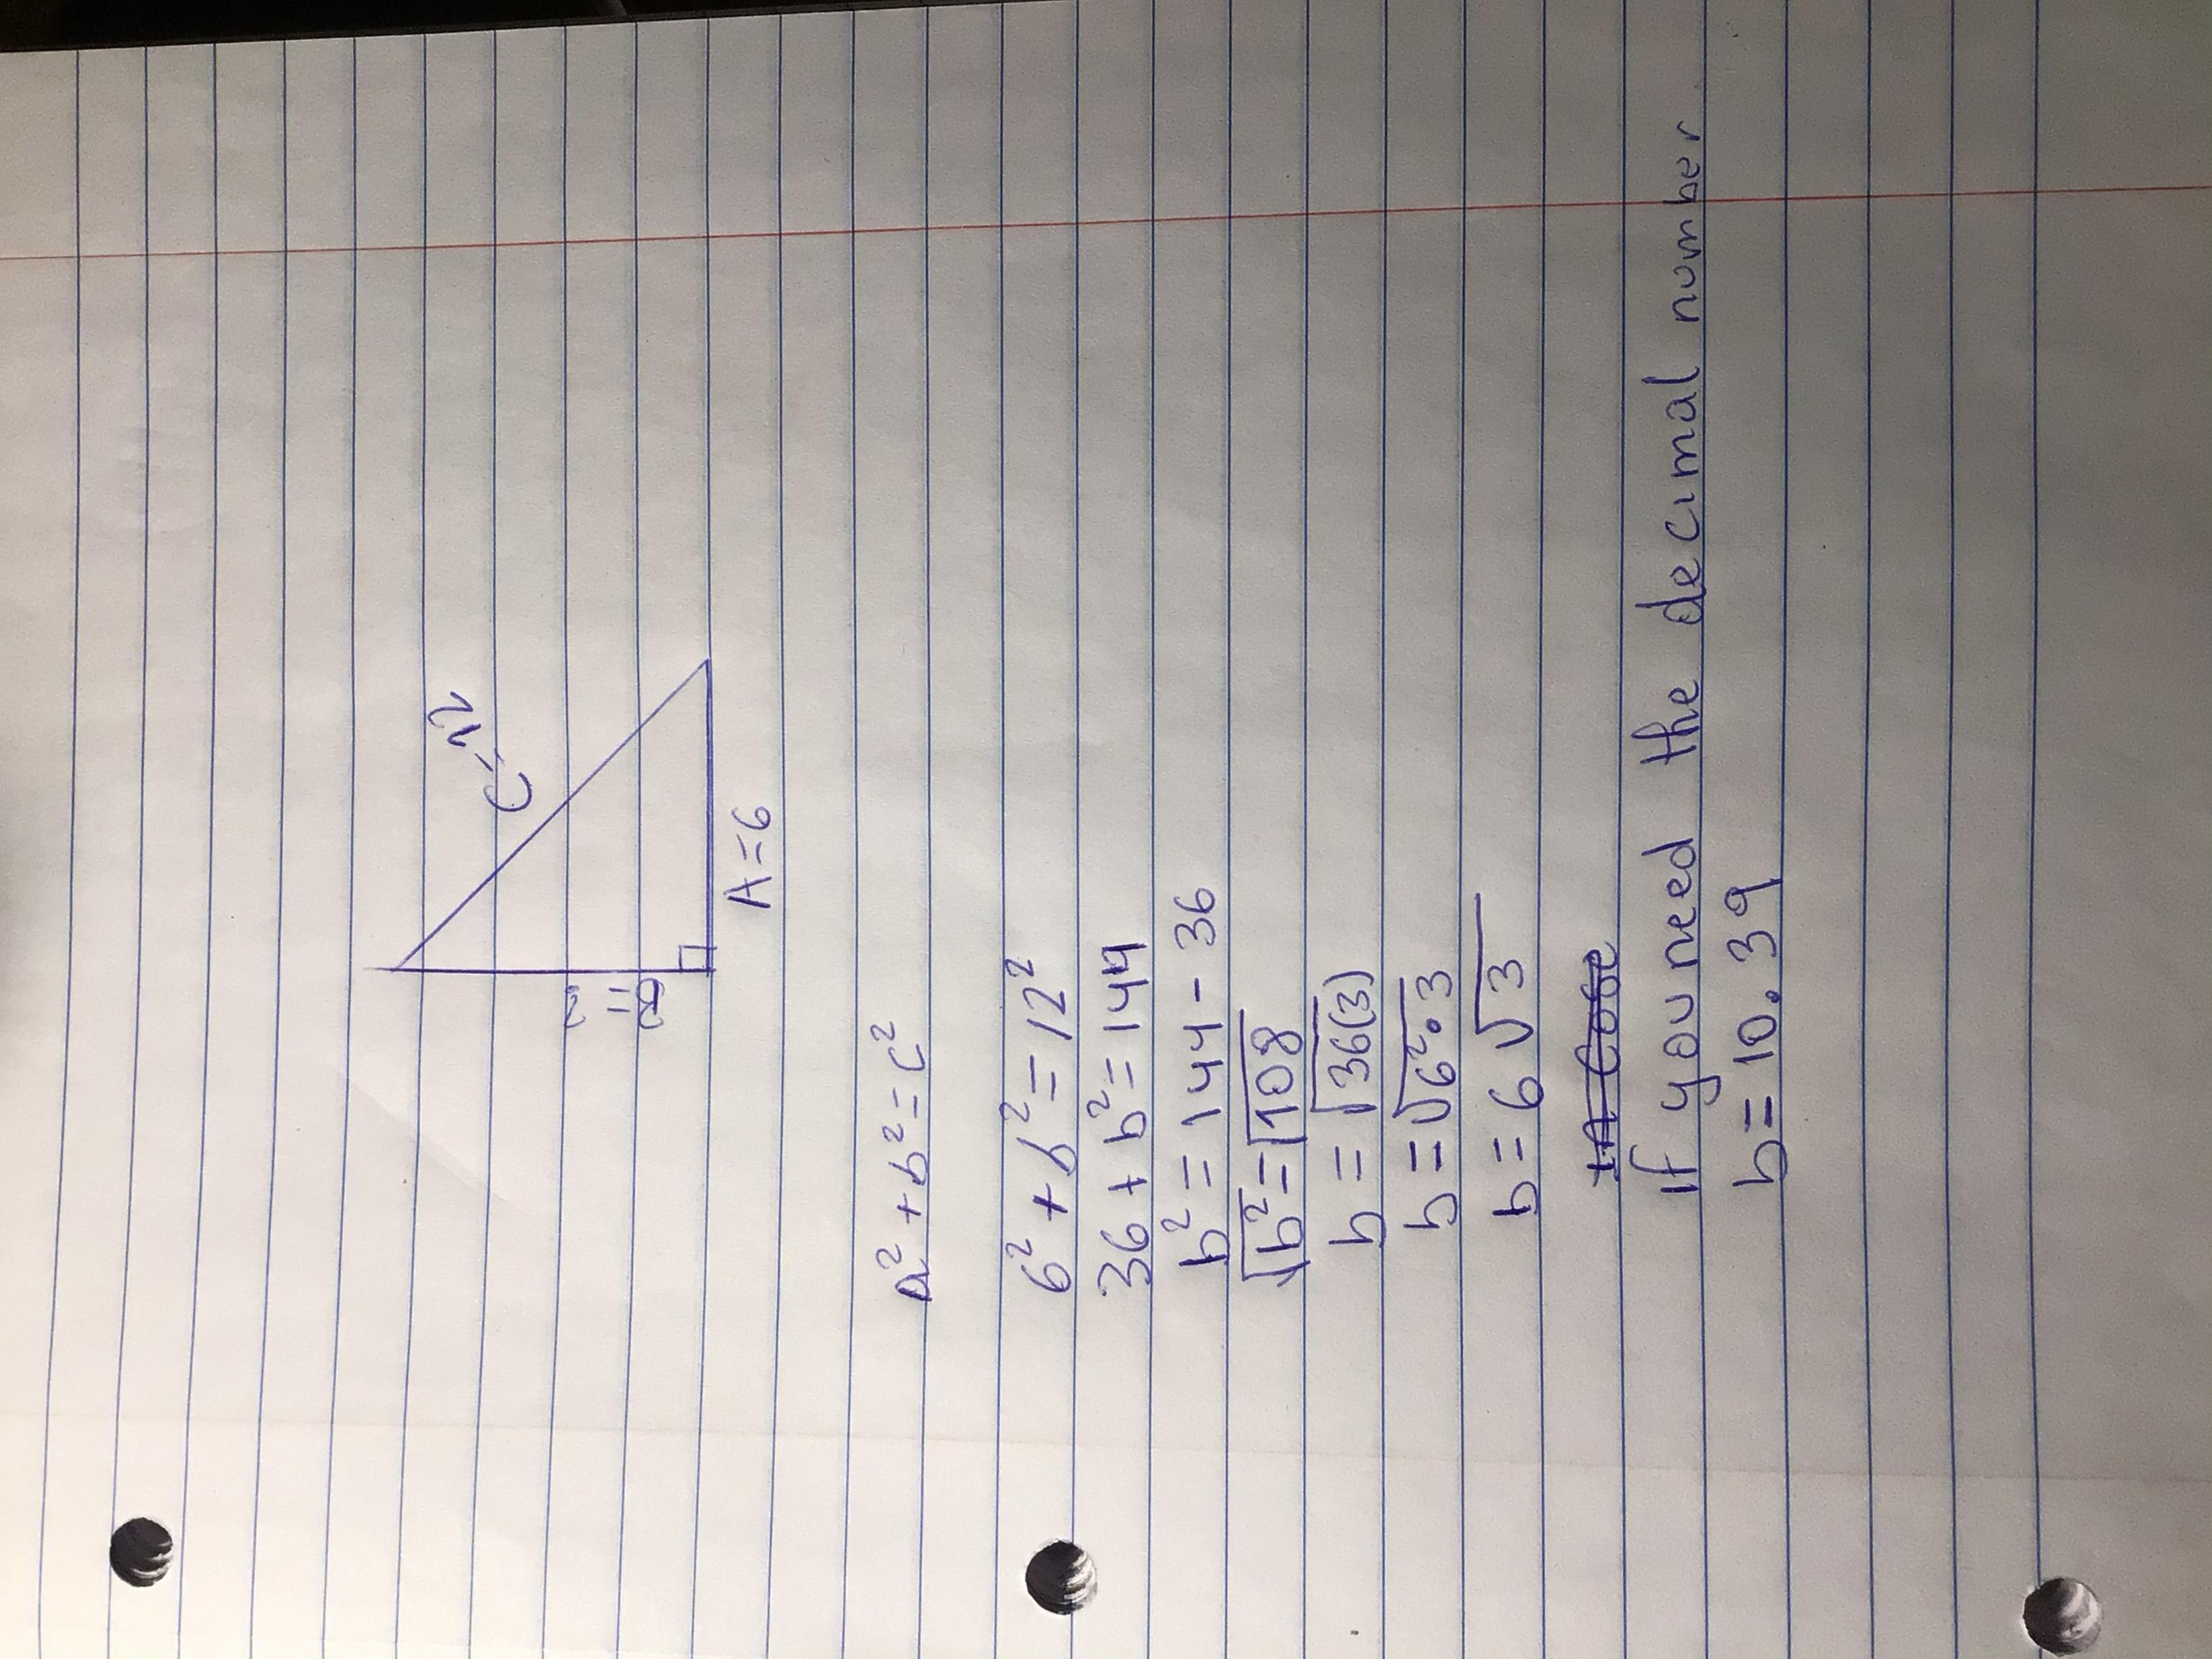 C=12
B=?
A=6
a² + b² = c²
6² + b² = 12²
36 + b² = 144
b² = 144 - 36
√b² = √108
b = √36(3)
b = √6²•3
b = 6√3
If you need the decimal number
b = 10.39